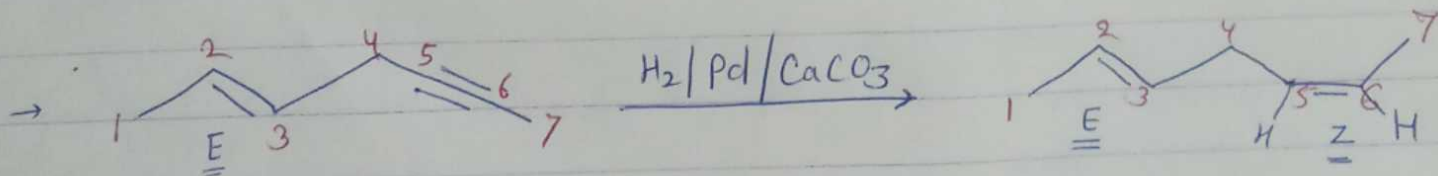 → 1 2 3 4 5 6 7 E H2/Pd/CaCO3 1 2 3 4 5 6 7 E H Z H